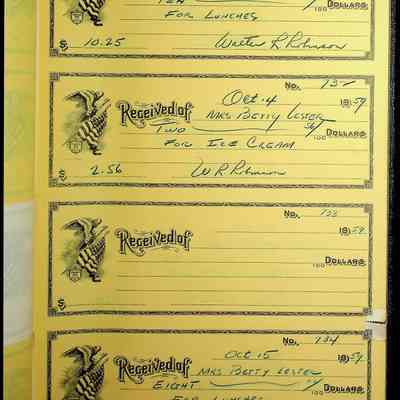 TEN 100 DOLLARS
FOR LUNCHES
$ 10.25 Walter R Robinson
No. 132
Oct 4 1959
Received of MRS BETTY LESTER
TWO 56/100 DOLLARS
FOR ICE CREAM
$ 2.56 W R Robinson
No. 133
1959
Received of
100 DOLLARS
$
No. 134
Oct 15 1959
Received of MRS BETTY LESTER
EIGHT 100 DOLLARS
FOR LUNCHES